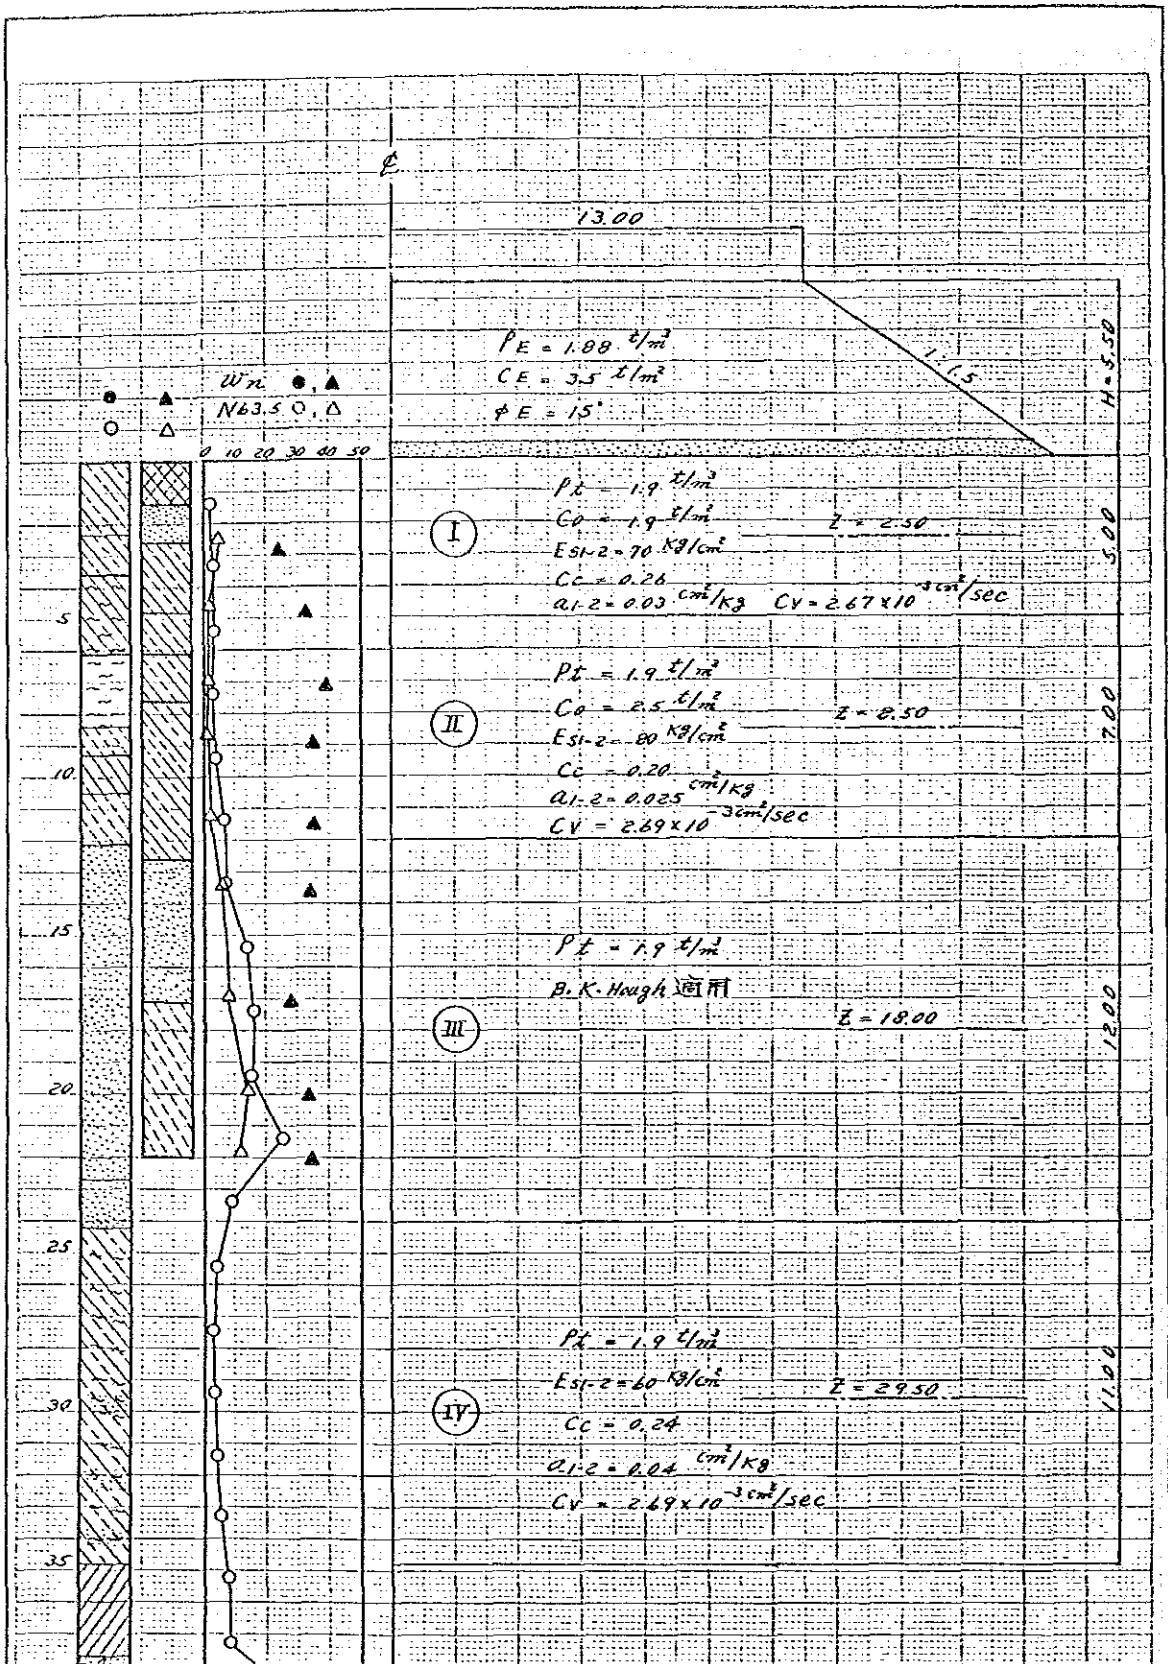 ℄
13.00
ρE = 1.88 t/m³
CE = 3.5 t/m²
φE = 15°
1:1.5
H = 5.50
Wn ●, ▲
N63.5 ○, △
0 10 20 30 40 50
I
ρt = 1.9 t/m³
Co = 1.9 t/m²
Es1-2 = 70 Kg/cm²
Cc = 0.26
a1-2 = 0.03 cm²/Kg Cv = 2.67 x 10⁻³ cm²/sec
Z = 2.50
5.00
II
ρt = 1.9 t/m³
Co = 2.5 t/m²
Es1-2 = 80 Kg/cm²
Cc = 0.20
a1-2 = 0.025 cm²/Kg
Cv = 2.69 x 10⁻³ cm²/sec
Z = 8.50
7.00
III
ρt = 1.9 t/m³
B.K.Hough 適用
Z = 18.00
12.00
IV
ρt = 1.9 t/m³
Es1-2 = 60 Kg/cm²
Cc = 0.24
a1-2 = 0.04 cm²/Kg
Cv = 2.69 x 10⁻³ cm²/sec
Z = 29.50
11.00
5
10
15
20
25
30
35